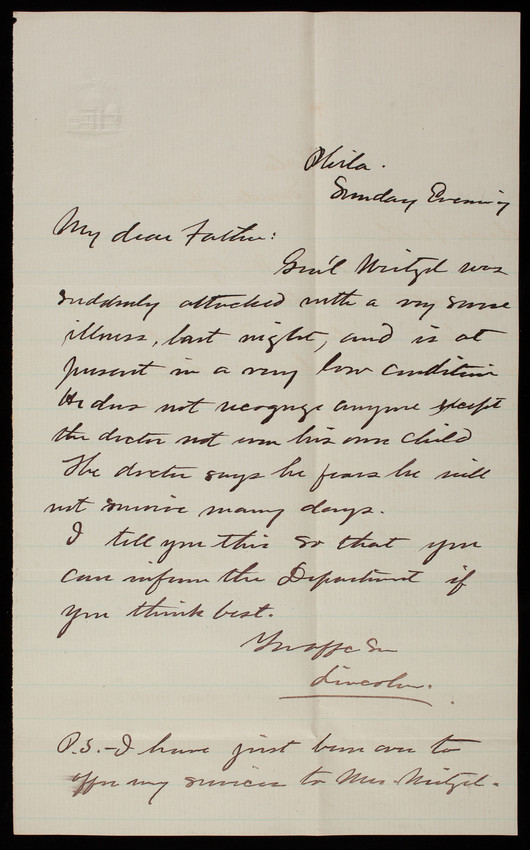 Phila.
Sunday Evening
My dear Father:
Gen'l Weitzel was
suddenly attacked with a very severe
illness, last night, and is at
present in a very low condition
He does not recognize anyone except
the doctor not even his own child
The doctor says he fears he will
not survive many days.
I tell you this so that you
can inform the Department if
you think best.
Yr affc Son
Lincoln.
P.S. - I have just been over to
offer my services to Mrs. Weitzel.